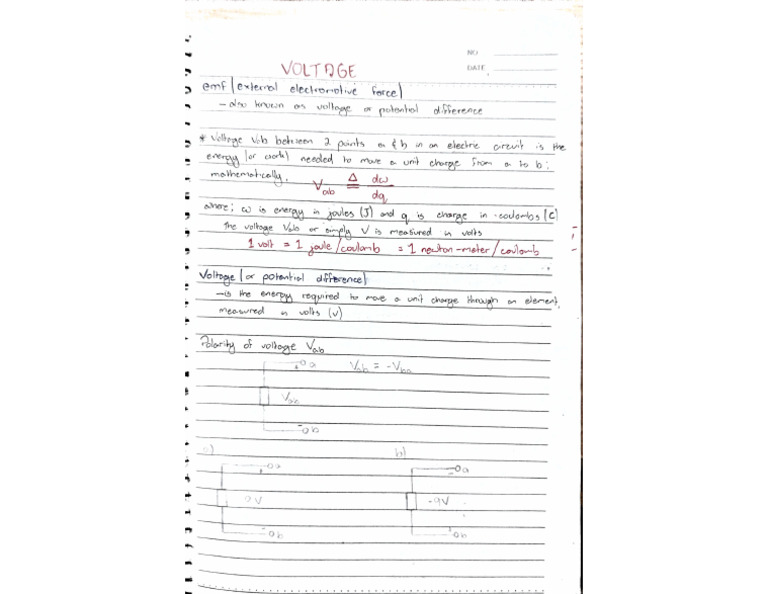 NO
DATE
VOLTAGE
emf (external electromotive force)
- also known as voltage or potential difference
* Voltage Vab between 2 points a & b in an electric circuit is the
energy (or work) needed to move a unit charge from a to b;
mathematically,
Vab ≜ dw/dq
where; w is energy in joules (J) and q is charge in coulombs (C)
The voltage Vab or simply V is measured in volts
1 volt = 1 joule/coulomb = 1 newton-meter/coulomb
Voltage (or potential difference)
- is the energy required to move a unit charge through an element,
measured in volts (V)
Polarity of voltage Vab
+ a Vab = -Vba
Vab
- b
a) b)
+ a + a
9V -9V
- b - b